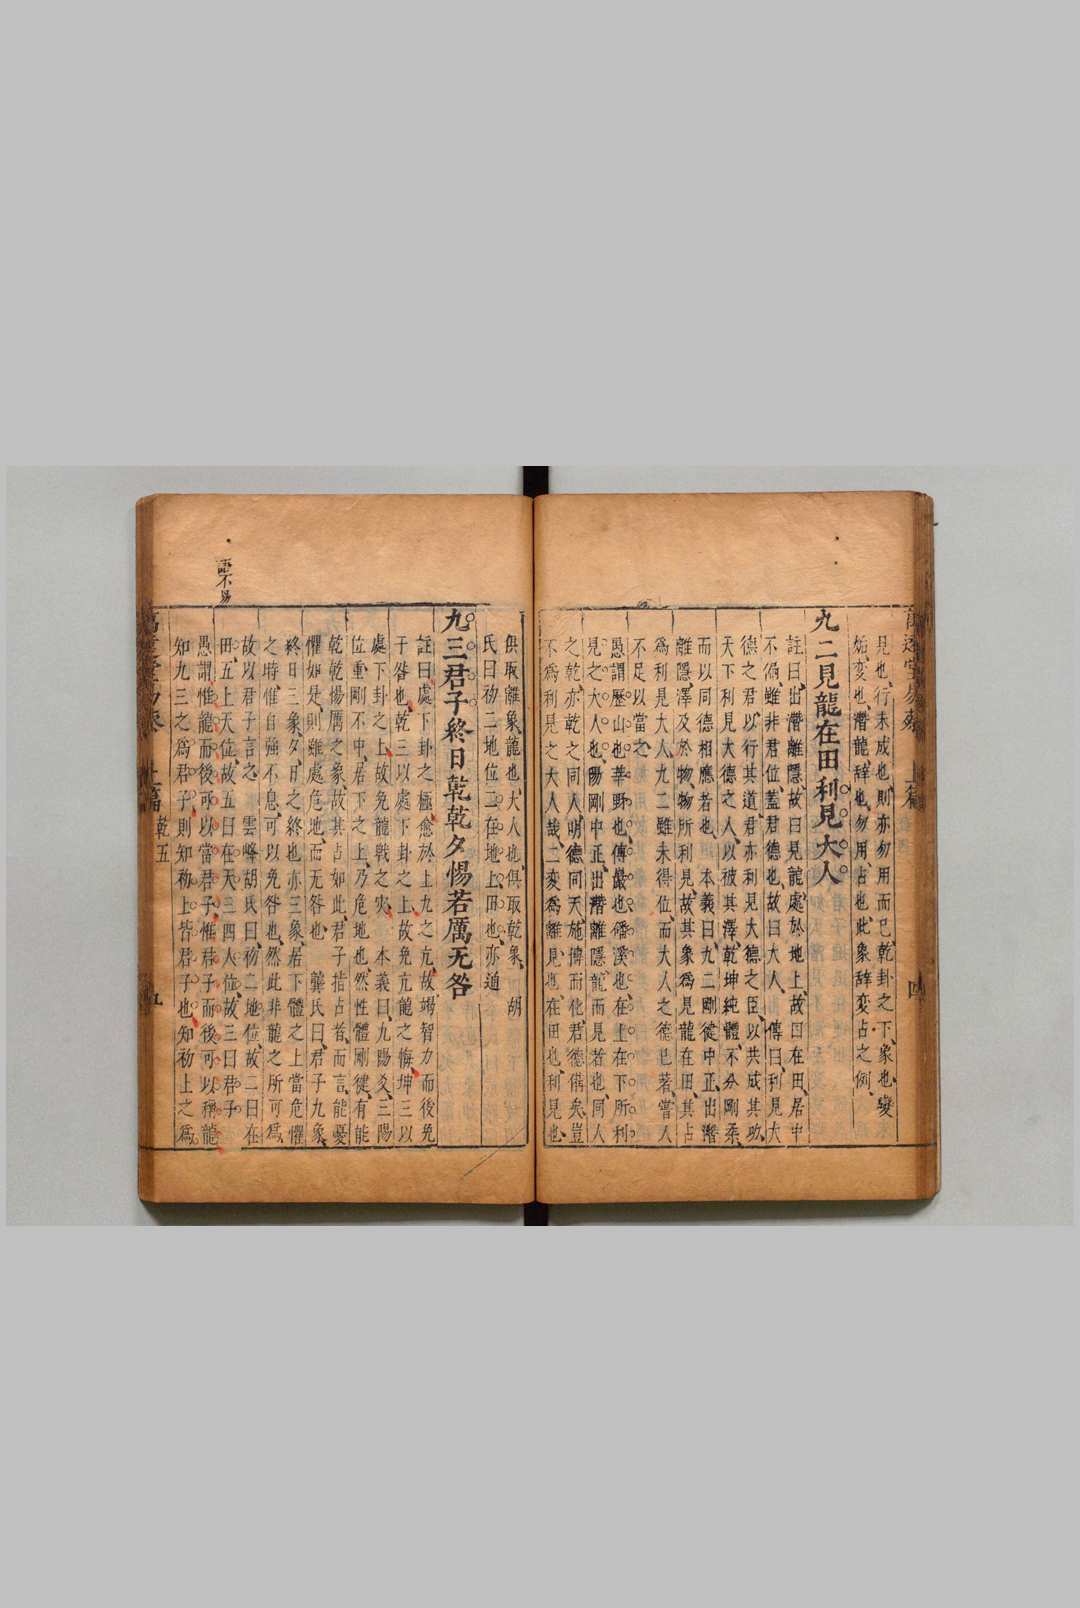 見也、行未成也、則亦勿用而已、乾卦之下、象也、變
姤変也、潛龍、辞也、勿用、占也、此象辞変占之例、
九二見龍在田利見大人
註曰、出潛離隱、故曰見龍、處於地上、故曰在田、居中
不偏、雖非君位、蓋君德也、故曰大人、 傳曰、利見大
德之君、以行其道、君亦利見大德之臣、以共成其功、
天下利見大德之人、以被其澤、乾坤純體、不分剛柔、
而以同德相應若也、 本義曰、九二剛健中正、出潛
離隱、澤及於物、物所利見、故其象為見龍在田、其占
為利見大人、九二雖未得位、而大人之德已著、常人
不足以當之、
愚謂歷山也、莘野也、傅巖也、磻溪也、在上在下、所利
見之大人也、陽剛中正、出潛離隱、龍而見者也、同人
之乾、亦乾之同人、明德同天、施博而化、君德備矣、豈
不為利見之大人哉、二変為離、見也、在田也、利見也、
俱取離象、龍也、大人也、俱取乾象、 胡
氏曰、初二地位、二在地上、田也、亦通
九三君子終日乾乾夕惕若厲无咎
註曰、處下卦之極、愈於上九之亢、故竭智力而後免
于咎也、乾三以處下卦之上、故免亢龍之悔、坤三以
處下卦之上、故免龍戰之災、 本義曰、九陽爻、三陽
位、重剛不中、居下之上、乃危地也、然性體剛健、有能
乾乾惕厲之象、故其占如此、君子指占者、而言、能憂
懼如是、則雖處危地、而无咎也、 龔氏曰、君子九象、
終日三象、夕、日之終也、亦三象、若下體之上當危懼
之時、惟自強不息、可以免咎也、然此非龍之所可為、
故以君子言之、 雲峰胡氏曰、初二地位、故二曰在
田、五上天位、故五曰在天、三四人位、故三曰君子、
愚謂惟龍而後可以當君子、惟君子而後可以稱龍、
知九三之為君子、則知初上皆君子也、知初上之為
語不易
上篇 乾五
五
上篇
四